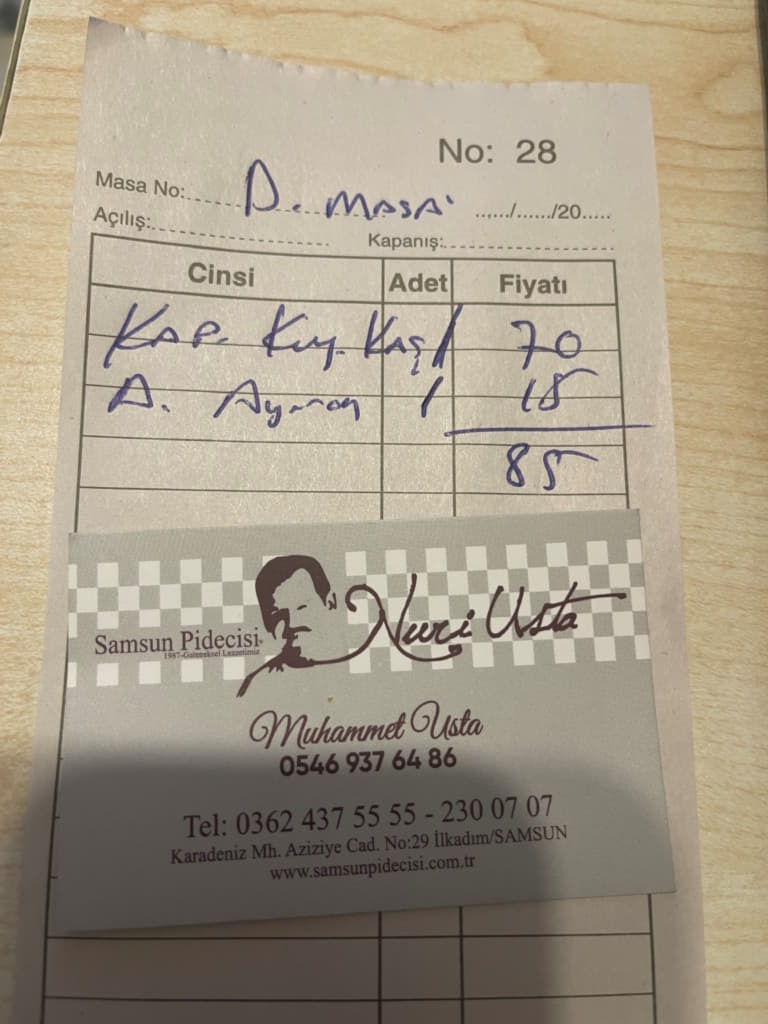 No: 28
Masa No: D. MASA ....../....../20.....
Açılış: Kapanış:
Cinsi Adet Fiyatı
KAP. Kıy. KAŞ 1 70
A. Ayran 1 15
85
Samsun Pidecisi
1987-Geleneksel Lezzetimiz
Nuri Usta
Muhammet Usta
0546 937 64 86
Tel: 0362 437 55 55 - 230 07 07
Karadeniz Mh. Aziziye Cad. No:29 İlkadım/SAMSUN
www.samsunpidecisi.com.tr